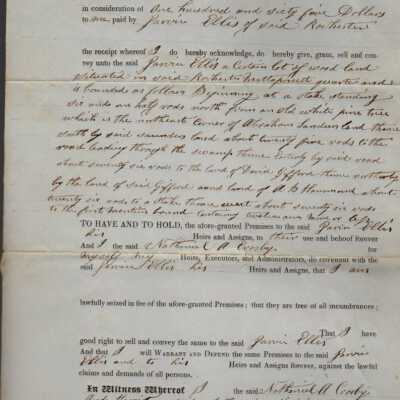 in consideration of One hundred and sixty five Dollars
to me paid by Jarvis Ellis of said Rochester
the receipt whereof I do hereby acknowledge, do hereby give, grant, sell and con-
vey unto the said Jarvis Ellis a certain lot of wood land
situated in said Rochester quarter and
is bounded as follows Beginning at a stake standing
six and an half rods north from an old white pine tree
which is the northeast corner of Abraham land thence
south by said land about twenty five rods to the
road leading through the swamp thence by said road
about twenty six rods to the land of David Gifford thence northerly
by the land of said Gifford and land of A Hammond about
twenty six rods to a stake thence west about twenty six rods
to the first mentioned bound containing
TO HAVE AND TO HOLD, the afore-granted Premises to the said Jarvis Ellis
his Heirs and Assigns, to their use and behoof forever
And I the said Nathaniel A Crosby for
myself my Heirs, Executors, and Administrators, do covenant with the
said Jarvis Ellis his Heirs and Assigns, that I am
lawfully seized in fee of the afore-granted Premises; that they are free of all incumbrances;
That I have
good right to sell and convey the same to the said Jarvis Ellis
And that I will WARRANT AND DEFEND the same Premises to the said Jarvis
Ellis and to his Heirs and Assigns forever, against the lawful
claims and demands of all persons.
In Witness Whereof I the said Nathaniel A Crosby